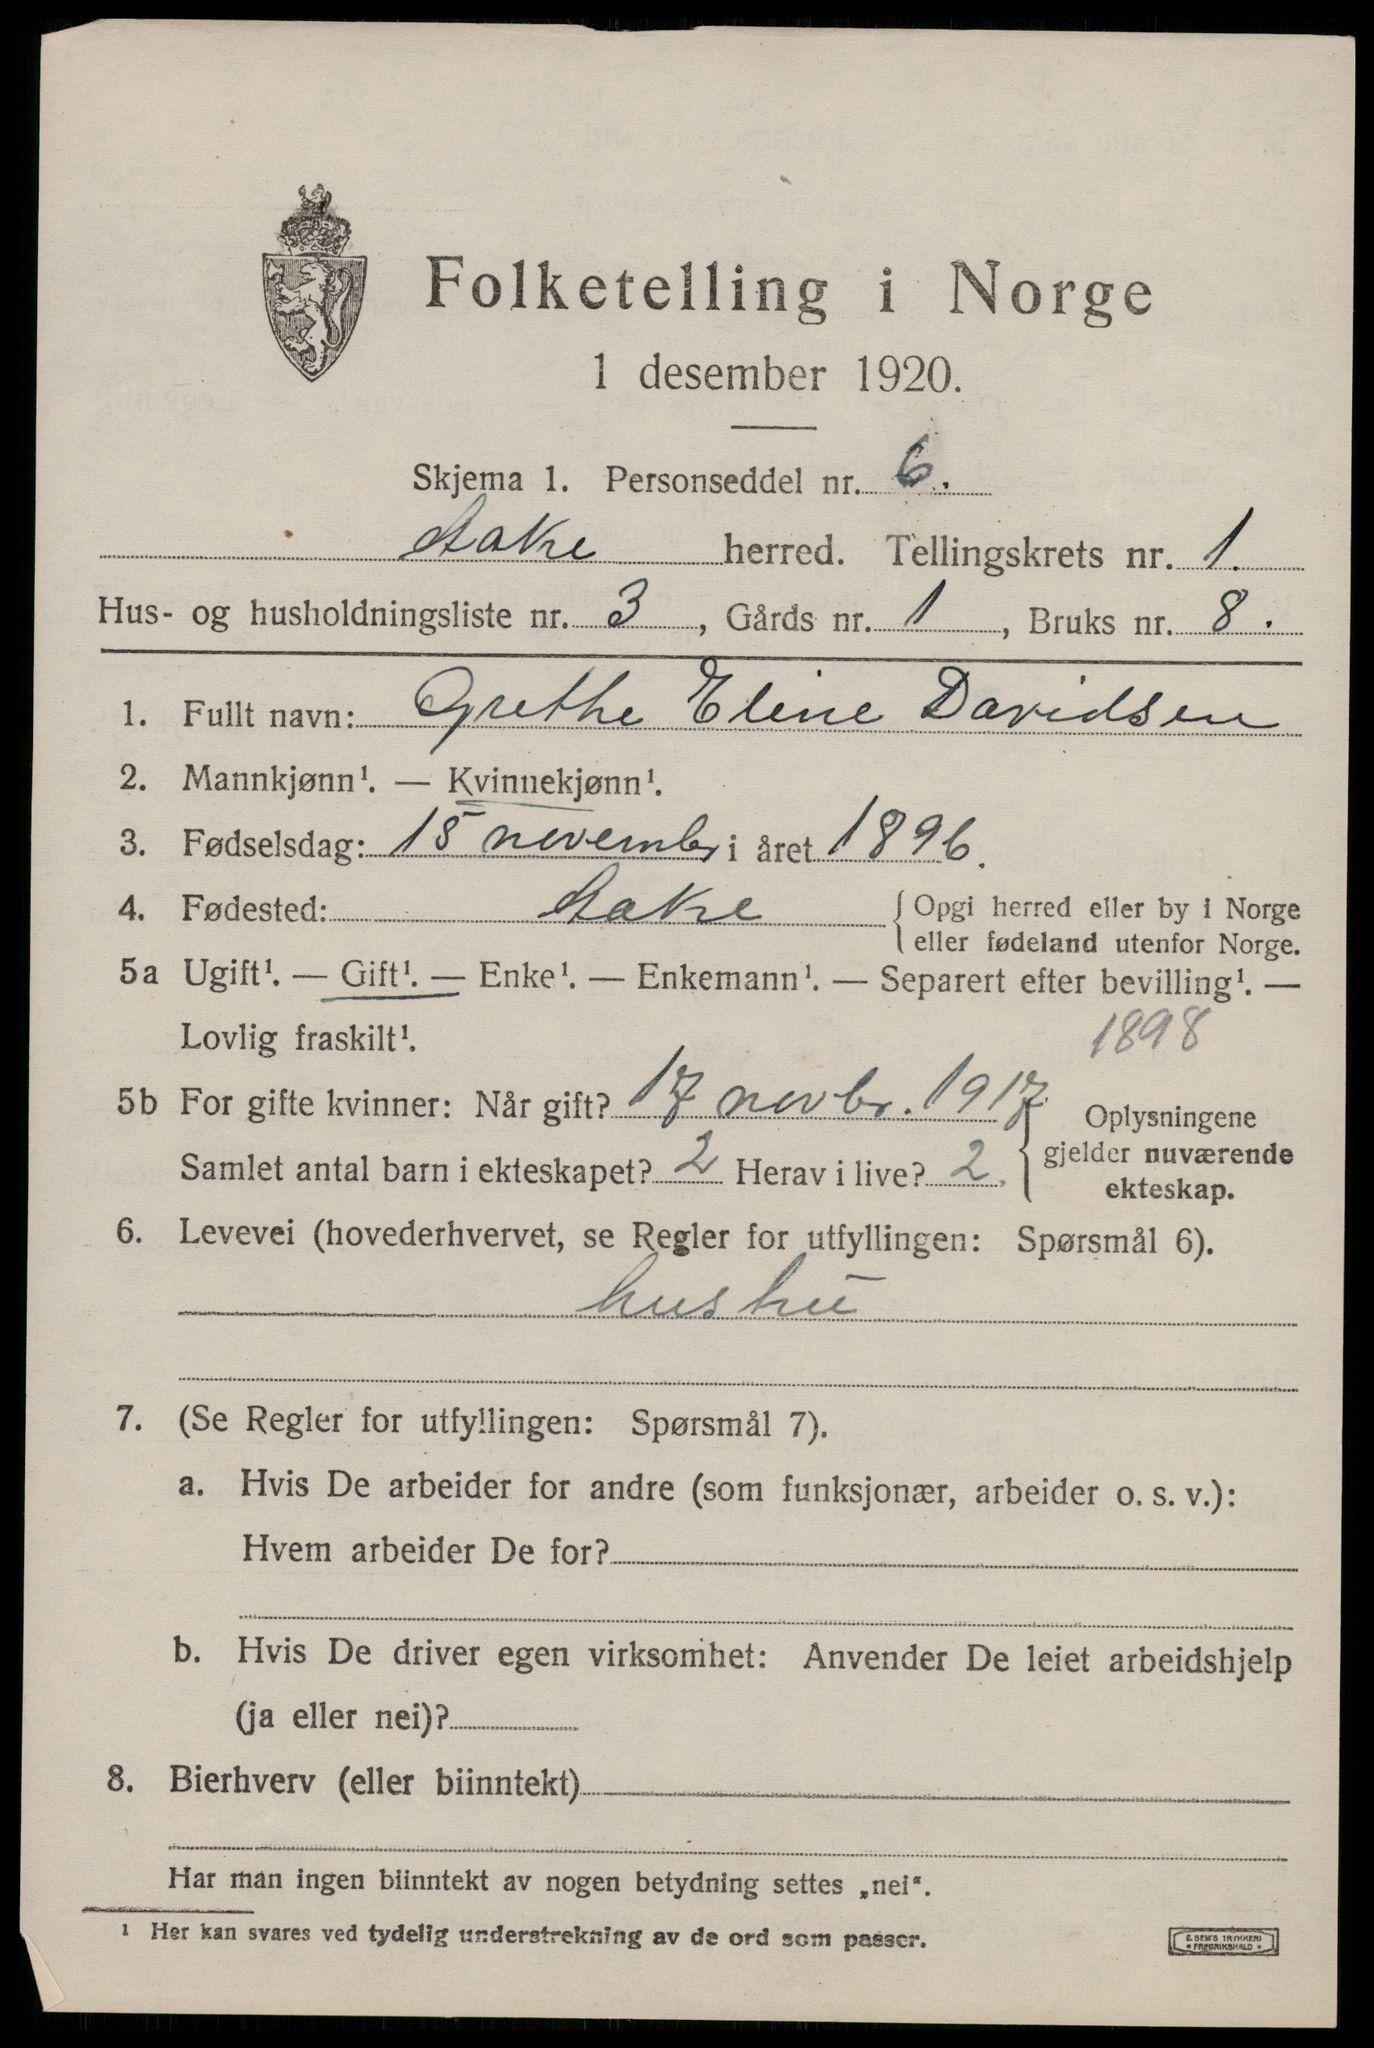 Folketelling i Norge
1 desember 1920.
Skjema 1. Personseddel nr. 6.
herred. Tellingskrets nr. 1.
Hus- og husholdningsliste nr. 3, Gårds nr. 1, Bruks nr. 8.
1. Fullt navn: Grethe Eline Davidsen
2. Mannkjønn¹. — Kvinnekjønn¹.
3. Fødselsdag: 15 novembr i året 1896.
4. Fødested: { Opgi herred eller by i Norge
eller fødeland utenfor Norge.
5a Ugift¹. — Gift¹. — Enke¹. — Enkemann¹. — Separert efter bevilling¹. —
Lovlig fraskilt¹.
1898
5b For gifte kvinner: Når gift? 17 novbr. 1917
Samlet antal barn i ekteskapet? 2 Herav i live? 2.
{ Oplysningene
gjelder nuværende
ekteskap.
6. Levevei (hovederhvervet, se Regler for utfyllingen: Spørsmål 6).
hustru
7. (Se Regler for utfyllingen: Spørsmål 7).
a. Hvis De arbeider for andre (som funksjonær, arbeider o. s. v.):
Hvem arbeider De for?
b. Hvis De driver egen virksomhet: Anvender De leiet arbeidshjelp
(ja eller nei)?
8. Bierhverv (eller biinntekt)
Har man ingen biinntekt av nogen betydning settes „nei“.
¹ Her kan svares ved tydelig understrekning av de ord som passer.
E. SEM'S TRYKKERI
• FREDRIKSHALD •